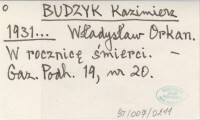 BUDZYK Kazimierz
1931... Władysław Orkan.
W rocznicę śmierci. –
Gaz. Podh. 19, nr 20.